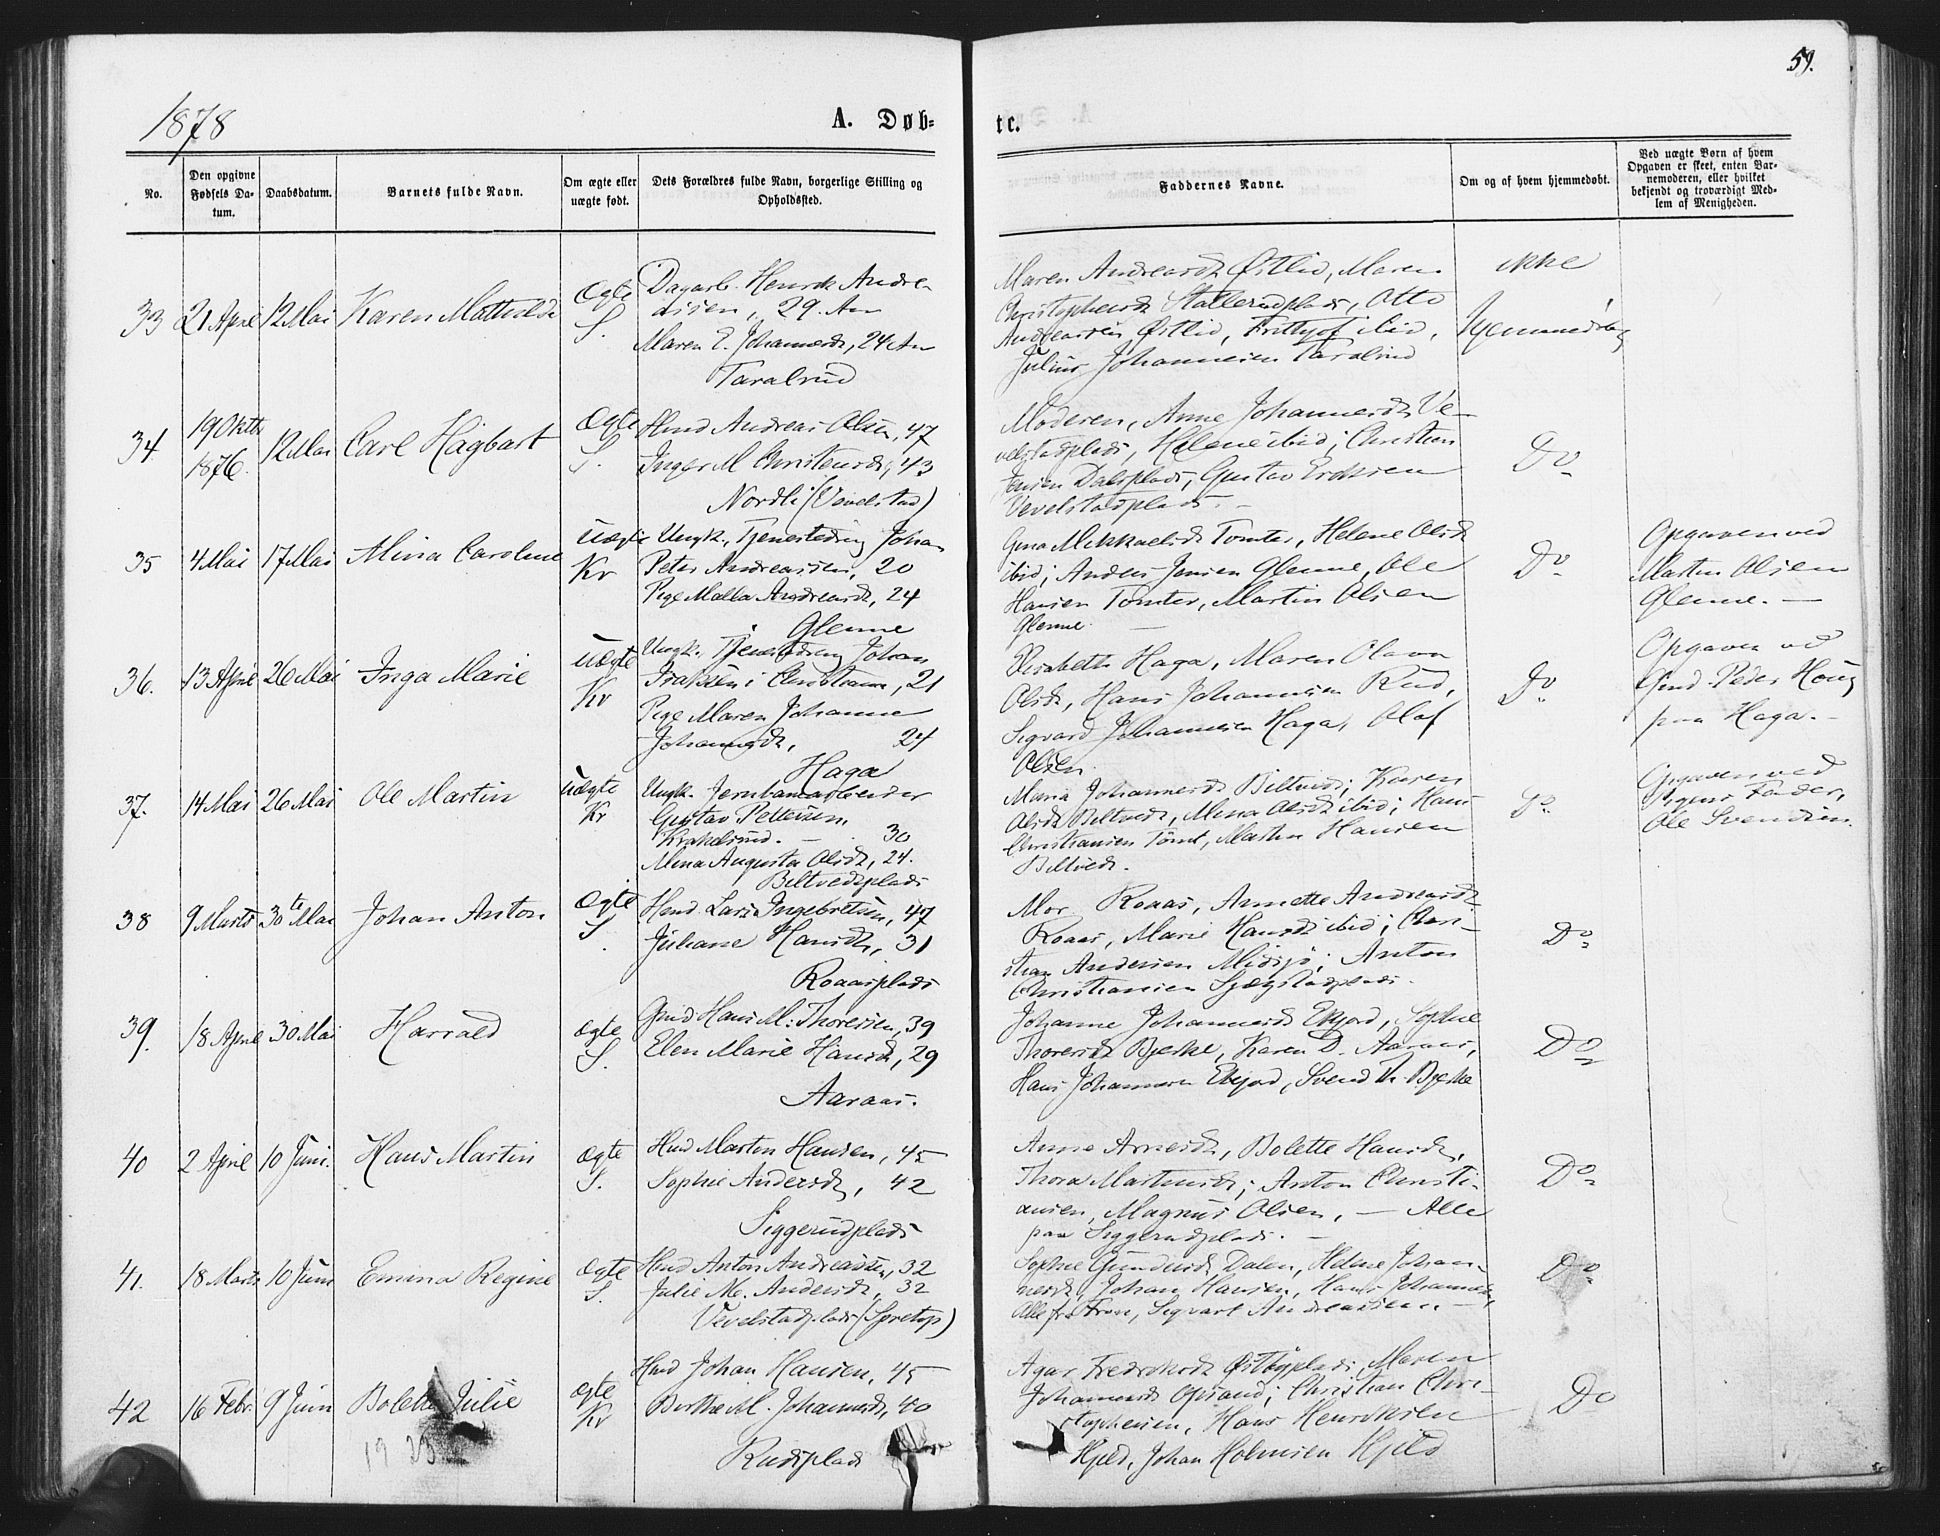 59.
1878
A. Døb-
te.
No.
Den opgivne Fødsels Da-tum.
Daabsdatum.
Barnets fulde Navn.
Om ægte eller uægte født.
Dets Forældres fulde Navn, borgerlige Stilling og Opholdssted.
Faddernes Navne.
Om og af hvem hjemmedøbt.
Ved uægte Børn af hvem Opgaven er skeet, enten Bar-nemoderen, eller hvilket bekjendt og troværdigt Med-lem af Menigheden.
33 21 April 12 Mai Karen Mathilde
Ægte
S.
Dagarb. Henrik Andre-
assen, 29. An
Maren E. Johannesd, 24 An
Taralrud
Maren Andreasd Østlid, Maren
Christophersd Stallerudplads, Otto
Andreassen Østlid, Frithjof ibid,
Julius Johannesen Taralrud
ikke
hjemmedøbt
34. 19 Oktbr
1876. 12 Mai Carl Hagbart
Ægte
S.
Hmd Andreas Olsen, 47
Inger M Christensd, 43
Nordli (Vevelstad)
Moderen, Anne Johannesd Ve-
velstadplads, Helene ibid; Christian
Jensen Dalsplads, Gustav Eriksen
Vevelstadplads. -
Do
35 4 Mai 17 Mai Mina Caroline
uægte
Kv
Ungk., Tjenestedreng Johan
Peter Andreassen, 20
Pige Malla Andreasd, 24
Glenne
Gina Mikkaelsd Tomter, Helene Olsd
ibid; Anders Jensen Glenne, Ole
Hansen Tomter, Martin Olsen
Glenne.
Do
Opgaven ved
Martin Olsen
Glenne. -
36. 13 April 26 Mai Inga Marie
uægte
Kv
Ungk. Tjenestedreng Johan
Isaksen i Christiania, 21
Pige Maren Johanne
Johannesd, 24
Haga
Elisabeth Haga, Maren Olava
Olsd, Hans Johannesen Rud,
Sigvard Johannesen Haga, Olaf
Olsen.
Do
Opgaven ved
Gmd. Peder Houg
paa Haga. -
37. 14 Mai 26 Mai Ole Martin
uægte
Kv
Ungk. Jernbanearbeider
Gustav Pettersen,
Krakelsrud. - 30
Mina Augusta Olsd, 24.
Biltvedtplads
Maria Johannesd Biltvedt; Karen
Olsd Biltvedt, Mina Olsd ibid; Hans
Christiansen Tomt, Mathis Hansen
Biltvedt.
Do
Opgaven ved
Pigens Fader,
Ole Svendsen.
38 9 Marts 30te Mai Johan Anton
Ægte
S.
Hmd. Lars Ingebretsen, 47
Juliane Hansd, 31
Roaasplads
Mor Roaas, Annette Andreasd
Roaas, Marie Hansd ibid; Chri-
stian Andersen Midsjø; Anton
Christiansen Sjægstadplads.
Do
39. 18 April 30 Mai Harald
ægte
S.
Gmd: Hans M: Thoresen, 39
Elen Marie Hansd, 29
Aaraas.
Johanne Johannesd Ekjord, Sophie
Thoresd Bjerke, Karen D. Aaraas,
Hans Johannesen Ekjord, Svend Th. Bjerke
Do
40 2 April 10 Juni. Hans Martin
ægte
S.
Hmd Martin Hansen, 45
Sophie Andersd, 42
Siggerudplads
Anne Arnesd, Bolette Hansd,
Thora Martinsd; Anton Christi-
ansen, Magnus Olsen, - Alle
paa Siggerudplads. -
Do
41. 18 Marts 10 Juni Emina Regine
Ægte
S.
Hmd Anton Andreassen, 32
Julie M. Andersd, 32
Vevelstadplads (Spretop)
Sophie Gundersd Dalen, Helene Johan-
nesd, Johan Hansen, Hans Johannesen,
Alle fra Tron, Sigvart Andreassen. -
Do
42 16 Febr. 9 Juni Bolette Julie
ægte
Kv
Hmd Johan Hansen, 45
Berthe M. Johannesd, 40
Rudsplads
Agar Fredriksd Østbyplads, Maren
Johannesd Opsand; Christian Chri-
stophersen, Hans Henriksen
Kjeld, Johan Holmsen Kjeld
Do
19 23